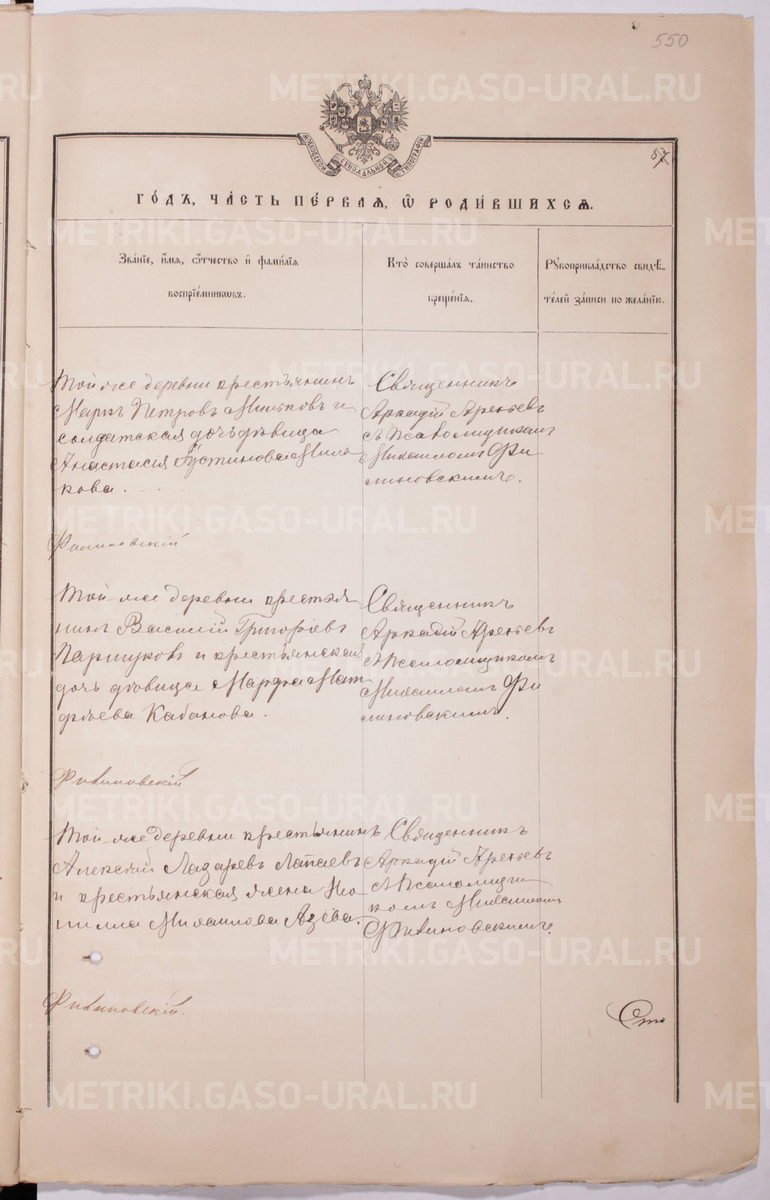 550
57
МОСКОВСКОЙ СѴНОДАЛЬНОЙ ТИПОГРАФІИ
ГО́ДЪ, ЧА́СТЬ ПЕ́РВАѦ, Ѡ҆ РОДИ́ВШИХСѦ.
Зва́нїе, и҆́мѧ, ѻ҆́тчество и҆ фами́лїѧ
воспрїе́мниковъ.
Кто̀ соверша́лъ та́инство
креще́нїѧ.
Рꙋкоприкла́дство свидѣ́-
телей за́писи по жела́нїю.
Той же деревни крестьянинъ
Маркъ Петровъ Мильковъ и
солдатская дочь дѣвица
Анастасія Густинова Миль
кова.
Священникъ
Аркадій Арефьевъ
съ Псаломщикомъ
Михаиломъ Фи
линовскимъ.
Филиновскій
Той же деревни крестья
нинъ Василій Григорьевъ
Паршуковъ и крестьянская
дочь дѣвица Марфа Мат
фѣева Кабанова.
Священникъ
Аркадій Арефьевъ
съ Псаломщикомъ
Михаиломъ Фи
линовскимъ.
Филиновскій
Той же деревни крестьянинъ
Алексѣй Лазаревъ Лапаевъ
и крестьянская жена Нео
нилла Михаилова Азёва.
Священникъ
Аркадій Арефьевъ
съ Псаломщи
комъ Михаиломъ
Филиновскимъ.
Филиновскій.
Сто
METRIKI.GASO-URAL.RU